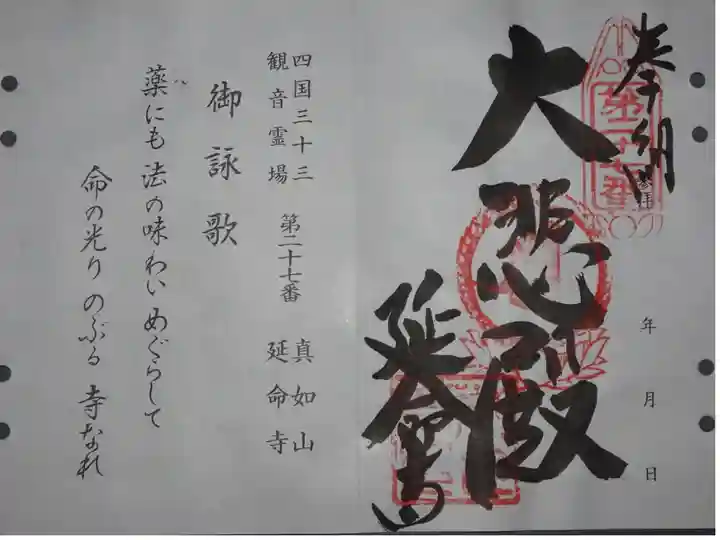 奉納
参拝
第二十七番
大悲殿
延命寺
年 月 日
四国三十三
観音霊場
第二十七番
真如山
延命寺
御詠歌
薬にも 法の味わい めぐらして
命の光り のぶる 寺なれ